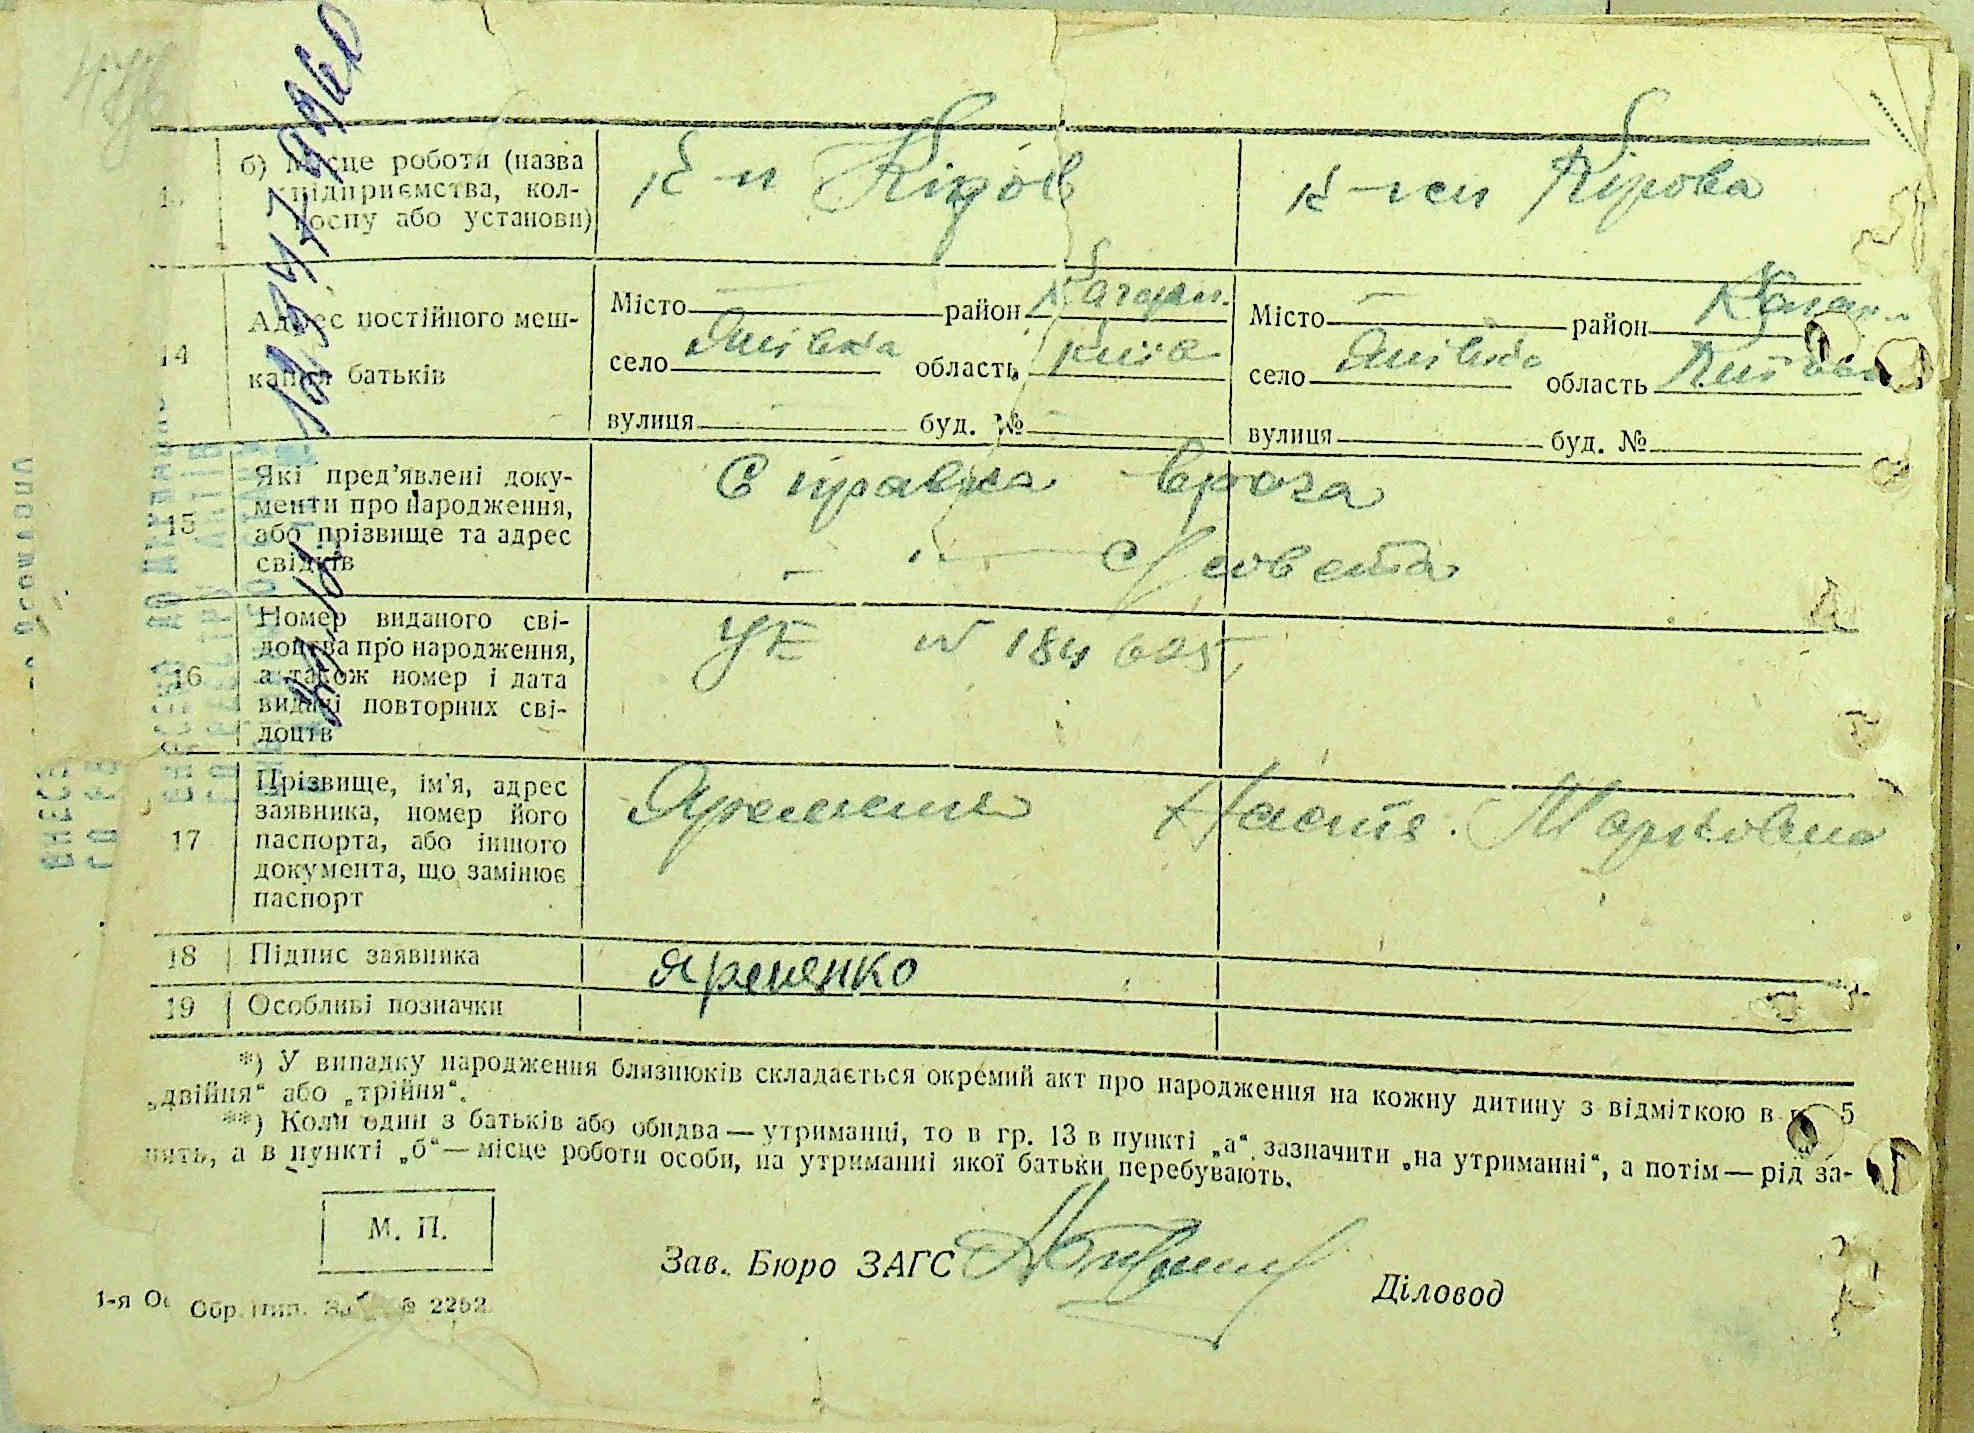 б) Місце роботи (назва
підприємства, кол-
госпу або установи)
к-п Кіров
к-геп Кірова
14
Адрес постійного меш-
кання батьків
Місто район Каган.
село Янівка область Київ
вулиця буд. №
Місто район Каган.
село Янівка область Київ
вулиця буд. №
15
Які пред’явлені доку-
менти про народження,
або прізвище та адрес
свідків
Справка врача
- " - с/совета
16
Номер виданого сві-
доцтва про народження,
а також номер і дата
видачі повторних сві-
доцтв
УЕ № 184625
17
Прізвище, ім’я, адрес
заявника, номер його
паспорта, або іншого
документа, що замінює
паспорт
Яременко Настя Марковна
18
Підпис заявника
Яременко
19
Особливі позначки
*) У випадку народження близнюків складається окремий акт про народження на кожну дитину з відміткою в г 5
„двійня“ або „трійня“.
**) Коли один з батьків або обидва — утриманці, то в гр. 13 в пункті „а“ зазначити „на утриманні“, а потім — рід за-
нять, а в пункті „б“ — місце роботи особи, на утриманні якої батьки перебувають.
М. П.
Зав. Бюро ЗАГС
Діловод
1-я Обр. тип. № 2252